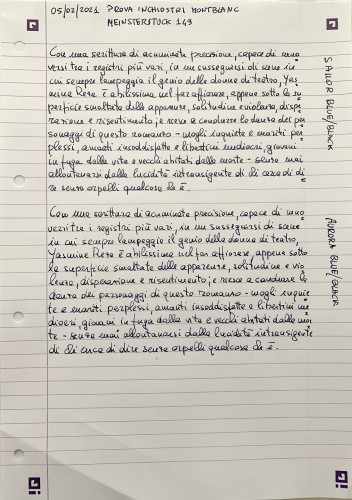 05/02/2021 PROVA INCHIOSTRI MONTBLANC
MEINSTERSTÜCK 149
Con una scrittura di acuminata precisione, capace di muo
versi tra i registri più vari, in un susseguirsi di scene in
cui sempre lampeggia il genio della donna di teatro, Yas
mina Reza è abilissima nel far affiorare, appena sotto la su
perficie smaltata delle apparenze, solitudine e violenza, dispe
razione e risentimento; e riesce a condurre la danza dei per
sonaggi di questo romanzo - mogli inquiete e mariti per
plessi, amanti insoddisfatte e libertini mediocri, giovani
in fuga dalla vita e vecchi abitati dalla morte - senza mai
allontanarsi dalla lucidità intransigente di chi cerca di di
re senza orpelli qualcosa che è.
SAILOR BLUE/BLACK
Con una scrittura di acuminata precisione, capace di muo
versi tra i registri più vari, in un susseguirsi di scene
in cui sempre lampeggia il genio della donna di teatro,
Yasmina Reza è abilissima nel far affiorare, appena sotto
la superficie smaltata delle apparenze, solitudine e vio
lenza, disperazione e risentimento; e riesce a condurre la
danza dei personaggi di questo romanzo - mogli inquie
te e mariti perplessi, amanti insoddisfatte e libertini me
diocri, giovani in fuga dalla vita e vecchi abitati dalla mor
te - senza mai allontanarsi dalla lucidità intransigente
di chi cerca di dire senza orpelli qualcosa che è.
AURORA BLUE/BLACK